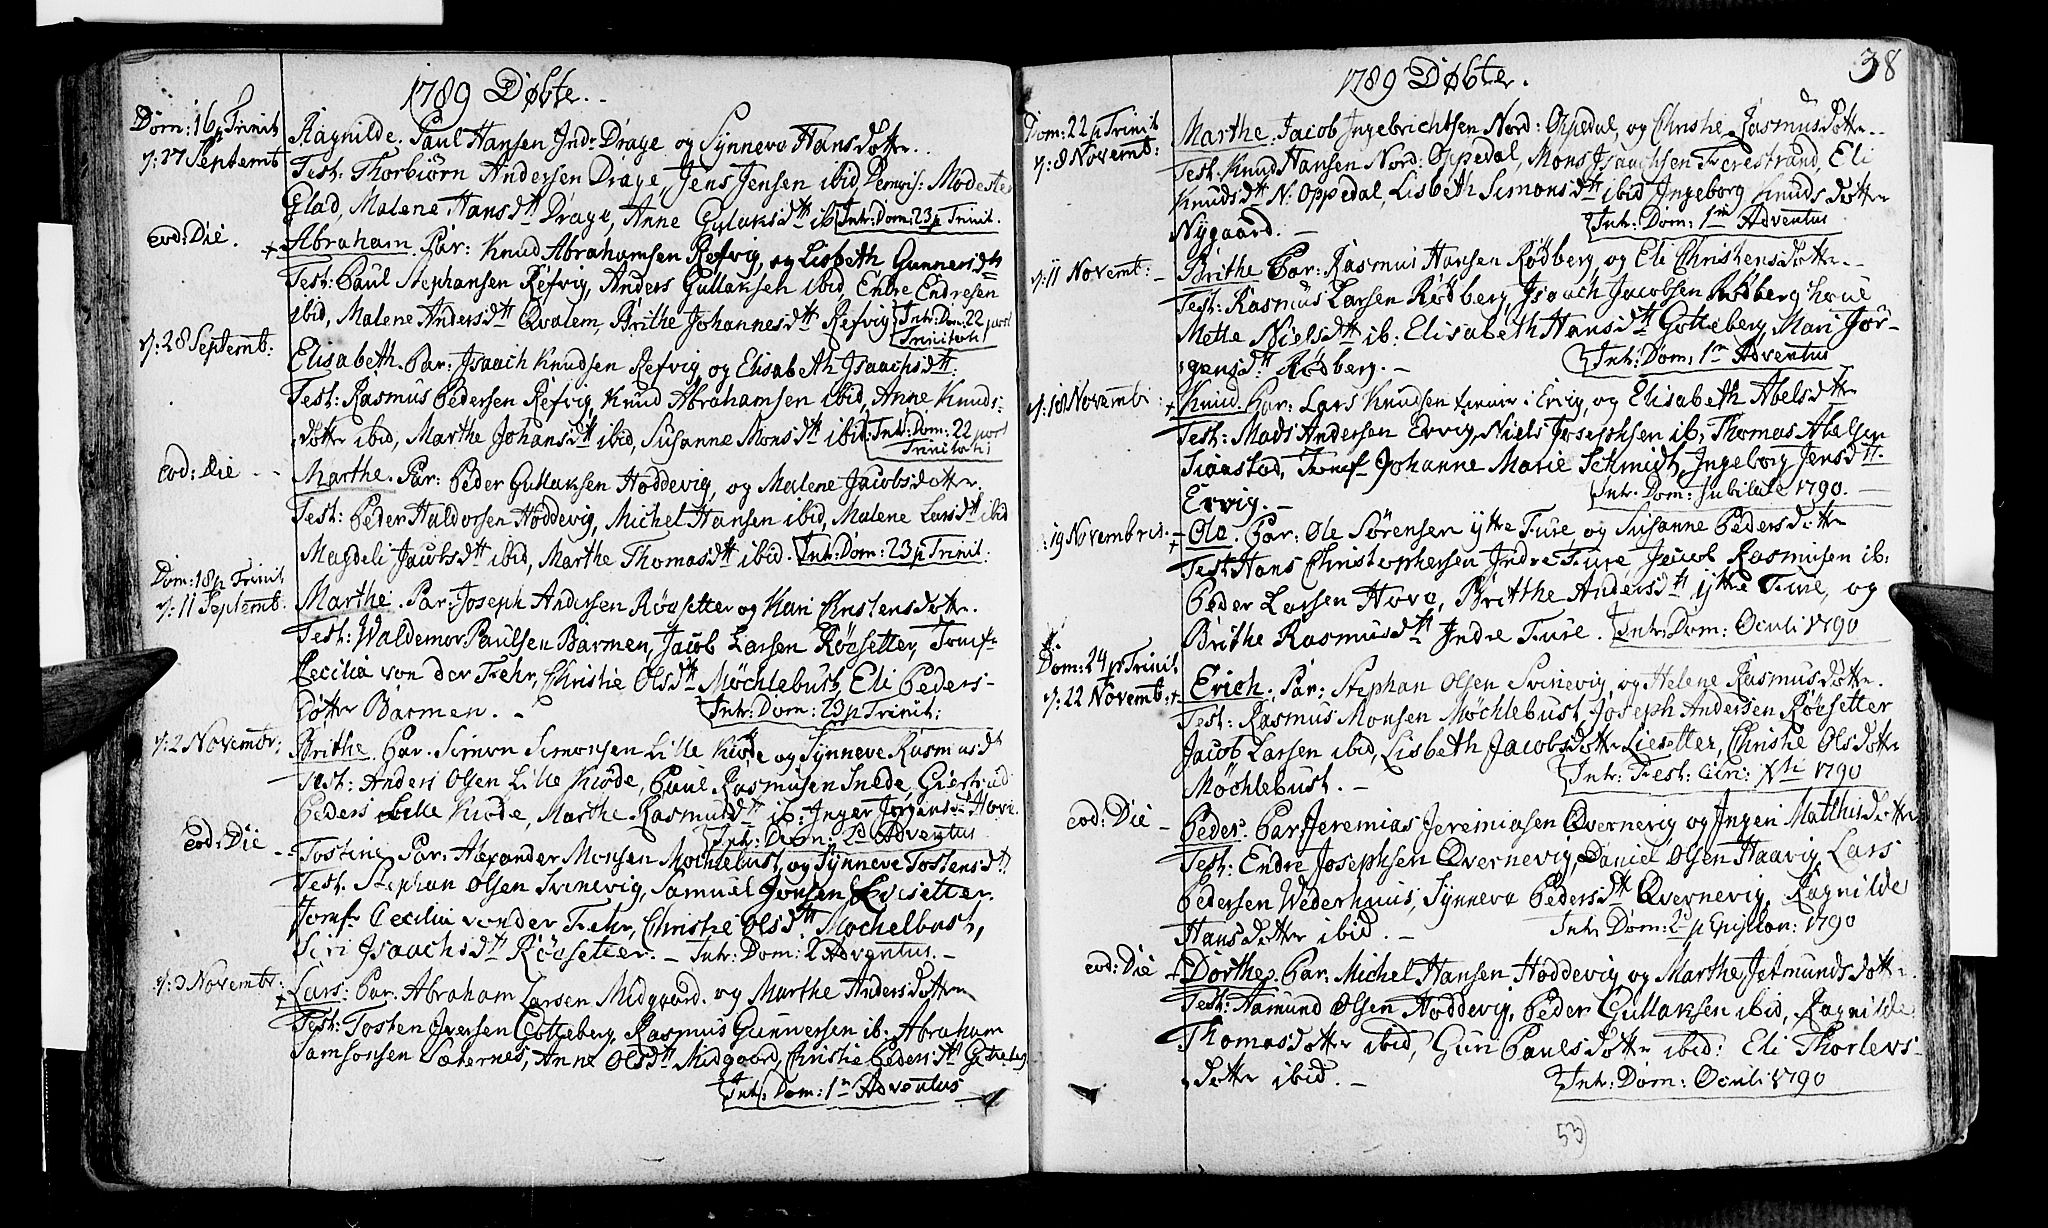 1789 Døbte.
Dom: 16 p Trinit
Ragnilde. Paul Hansen Ind: Drage og Synneva Hans dotter.
7: 27 Septemb
Test: Thorbiørn Andersen Drage, Jens Jensen ibid Demois: Modeste
Glad, Malene Hansdtt Drage, Anne Gulaksdtt ib Intr: Dom: 23 p Trinit.
eod: Die.
+ Abraham. Par: Knud Abrahamsen Refvig, og Lisbeth Gunners dtt
Test: Paul Stephansen Refvig, Anders Gullaksen ibid, Endre Endresen
ibid, Malene Andersdtt Qvalem, Brithe Johannesdtt Refvig Intr: Dom: 22 post
Trinitati
7: 28 Septemb:
Elisabeth. Par: Isaach Knudsen Refvig og Elisabeth Isaachsdtt.
Test: Rasmus Pedersen Refvig, Knud Abrahamsen ibid, Anne Knuds-
dotter ibid, Marthe Johansdtt ibid, Susanne Monsdtt ibid Intr: Dom: 22 post
Trinitati
eod: Die
Marthe. Par: Peder Gullaksen Hoddevig, og Malene Jacobsdotter.
Test: Peder Haldorsen Hoddevig, Michel Hansen ibid, Malene Larsdtt ibid
Magdeli Jacobsdtt ibid, Marthe Thomasdtt ibid. Intr: Dom: 23 p Trinit:
Dom: 18 p Trinit
7: 11 Septemb.
Marthe. Par: Joseph Andersen Røysetter og Kari Christensdotter.
Test: Waldemor Paulsen Barmen, Jacob Larsen Røysetter, Jomfr
Cecilia von der Fehr, Christie Olsdtt Møchlebust, Eli Peders-
dotter Barmen. - Intr: Dom: 23 p Trinit:
7: 2 Novembr:
Brithe. Par. Simon Simonsen Lille Kiøde og Synneve Rasmusdt
Test: Anders Olsen Lille Kiøde, Paul Rasmusen Snede, Giertrud
Peders Lille Kiøde, Marthe Rasmusdtt ib: Inger Jørgensdtt Hovie
Intr: Dom: 2 Adventus
eod: Die
Tostine. Par: Alexander Monsen Mochlebust, og Synneve Tostensdtt
Test. Stephan Olsen Svinevig, Samuel Jonsen Liesetter.
Jomfr Cecilia vonder Fehr, Christie Olsdtt Mochelbust,
Siri Isaachsdtt Røysetter. - Intr: Dom: 2 Adventus. -
7: 3 Novembr:
+ Lars: Par. Abraham Larsen Midgaard. og Marthe Andersdotter
Test: Tosten Iversen Gotteberg, Rasmus Gunnersen ib. Abraham
Samsonsen Sæternes, Anne Olsdtt Midgaard, Christie Pedersdtt Gotteberg
Intr: Dom: 1n Adventus
1789 Døbte.
38
Dom: 22 p Trinit
7: 8 Novemb:
Marthe. Jacob Ingebrichtsen Nord: Oppedal, og Christie Rasmusdotter.
Test. Knud Hansen Nord: Oppedal, Mons Isaachsen Ferestrand, Eli
Knudsdtt N: Oppedal, Lisbeth Simonsdtt ibid Ingeborg Knudsdotter
Nygaard. - Intr: Dom: 1n Adventus
7: 11 Novemt:
Brithe Par: Rasmus Hansen Rødberg, og Eli Christensdotter.
Test: Rasmus Larsen Rødberg, Isaach Jacobsen Rødberg
Mette Nielsdtt ib: Elisabeth Hansdtt Gotteberg, Mari Jør-
gensdtt Rødberg. - Intr: Dom: 1n Adventus
7: 18 Novembr:
+ Knud. Par: Lars Knudsen i Ervig, og Elisabeth Abelsdotter
Test: Mads Andersen Ervig, Niels Josephsen ib, Thomas Abelsen
Jomf Johanne Marie Schmidt, Ingeborg Jensdtt.
Ervig. - Intr. Dom: Jubilate 1790.
19 Novembris.
+ Ole. Par: Ole Sørensen ytre Fure, og Susanne Pedersdotter
Test Hans Christophersen Indre Fure Jacob Rasmusen ib:
Peder Larsen Hove, Britthe Andersdtt ytre Fure, og
Brithe Rasmusdtt Indre Fure. Intr: Dom: Oculi 1790
Dom: 24 p Trinit.
7: 22 Novemb: +
Erich. Par: Stephan Olsen Svinevig, og Helene Rasmusdotter.
Test: Rasmus Monsen Møchlebust Joseph Andersen Røysetter
Jacob Larsen ibid, Lisbeth Jacobsdotter Liesetter, Christie Olsdotter
Møchlebust. - Intr: Fest: Circ: Xti 1790
eod: Die
Peder. Par. Jeremias Jeremiasen Qvernevig og Ingen Matthisdotter
Test: Endre Josephsen Qvernevig, Daniel Olsen Haavig, Lars
Pedersen Wederhuus, Synneva Pedersdtt Qvernevig, Ragnilde
Hansdotter ibid. - Intr Dom: 2 p Epiphan: 1790
eod: Die
+ Dorthe. Par. Michel Hansen Hoddevig og Marthe Jetmundsdotter.
Test: Aamund Olsen Hoddevig, Peder Gullaksen ibid, Ragnilde
Thomasdotter ibid, Guri Paulsdotter ibid: Eli Thorlevs-
dotter ibid. - Intr: Dom: Oculi 1790
53